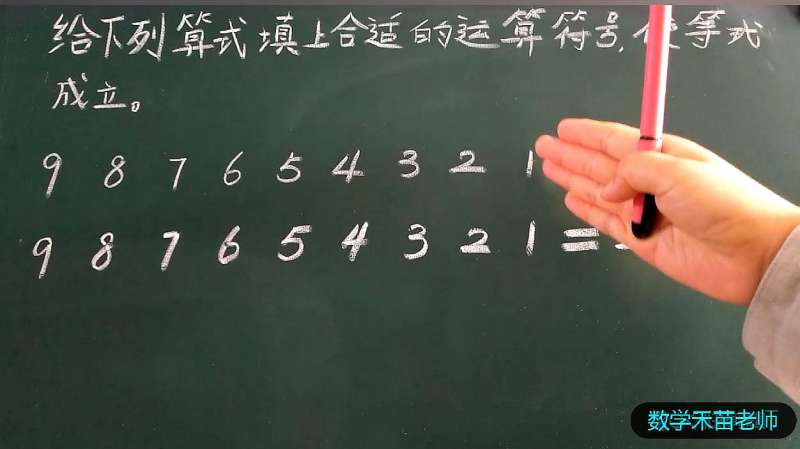 给下列算式填上合适的运算符号,使等式
成立。
9 8 7 6 5 4 3 2 1
9 8 7 6 5 4 3 2 1 =
数学禾苗老师